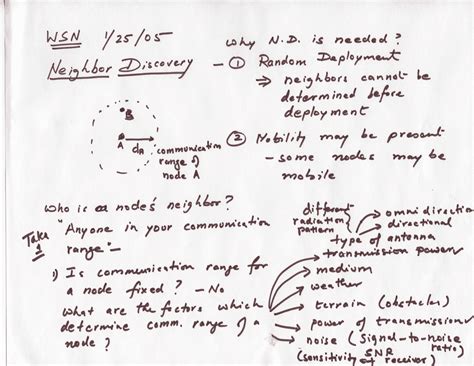 WSN 1/25/05
Neighbor Discovery
B
A
dA communication
range of
node A
Why N.D. is needed?
- ① Random Deployment
⇒ neighbors cannot be
determined before
deployment
② Mobility may be present
- some nodes may be
mobile
Who is a node's neighbor?
Take 1
"Anyone in your communication
range" -
1) Is communication range for
a node fixed? - No
What are the factors which
determine comm. range of a
node?
different
radiation
pattern
omnidirection
directional
type of antenna
transmission power
medium
weather
terrain (obstacles)
power of transmission
noise (signal-to-noise
ratio)
SNR
(sensitivity of receiver)